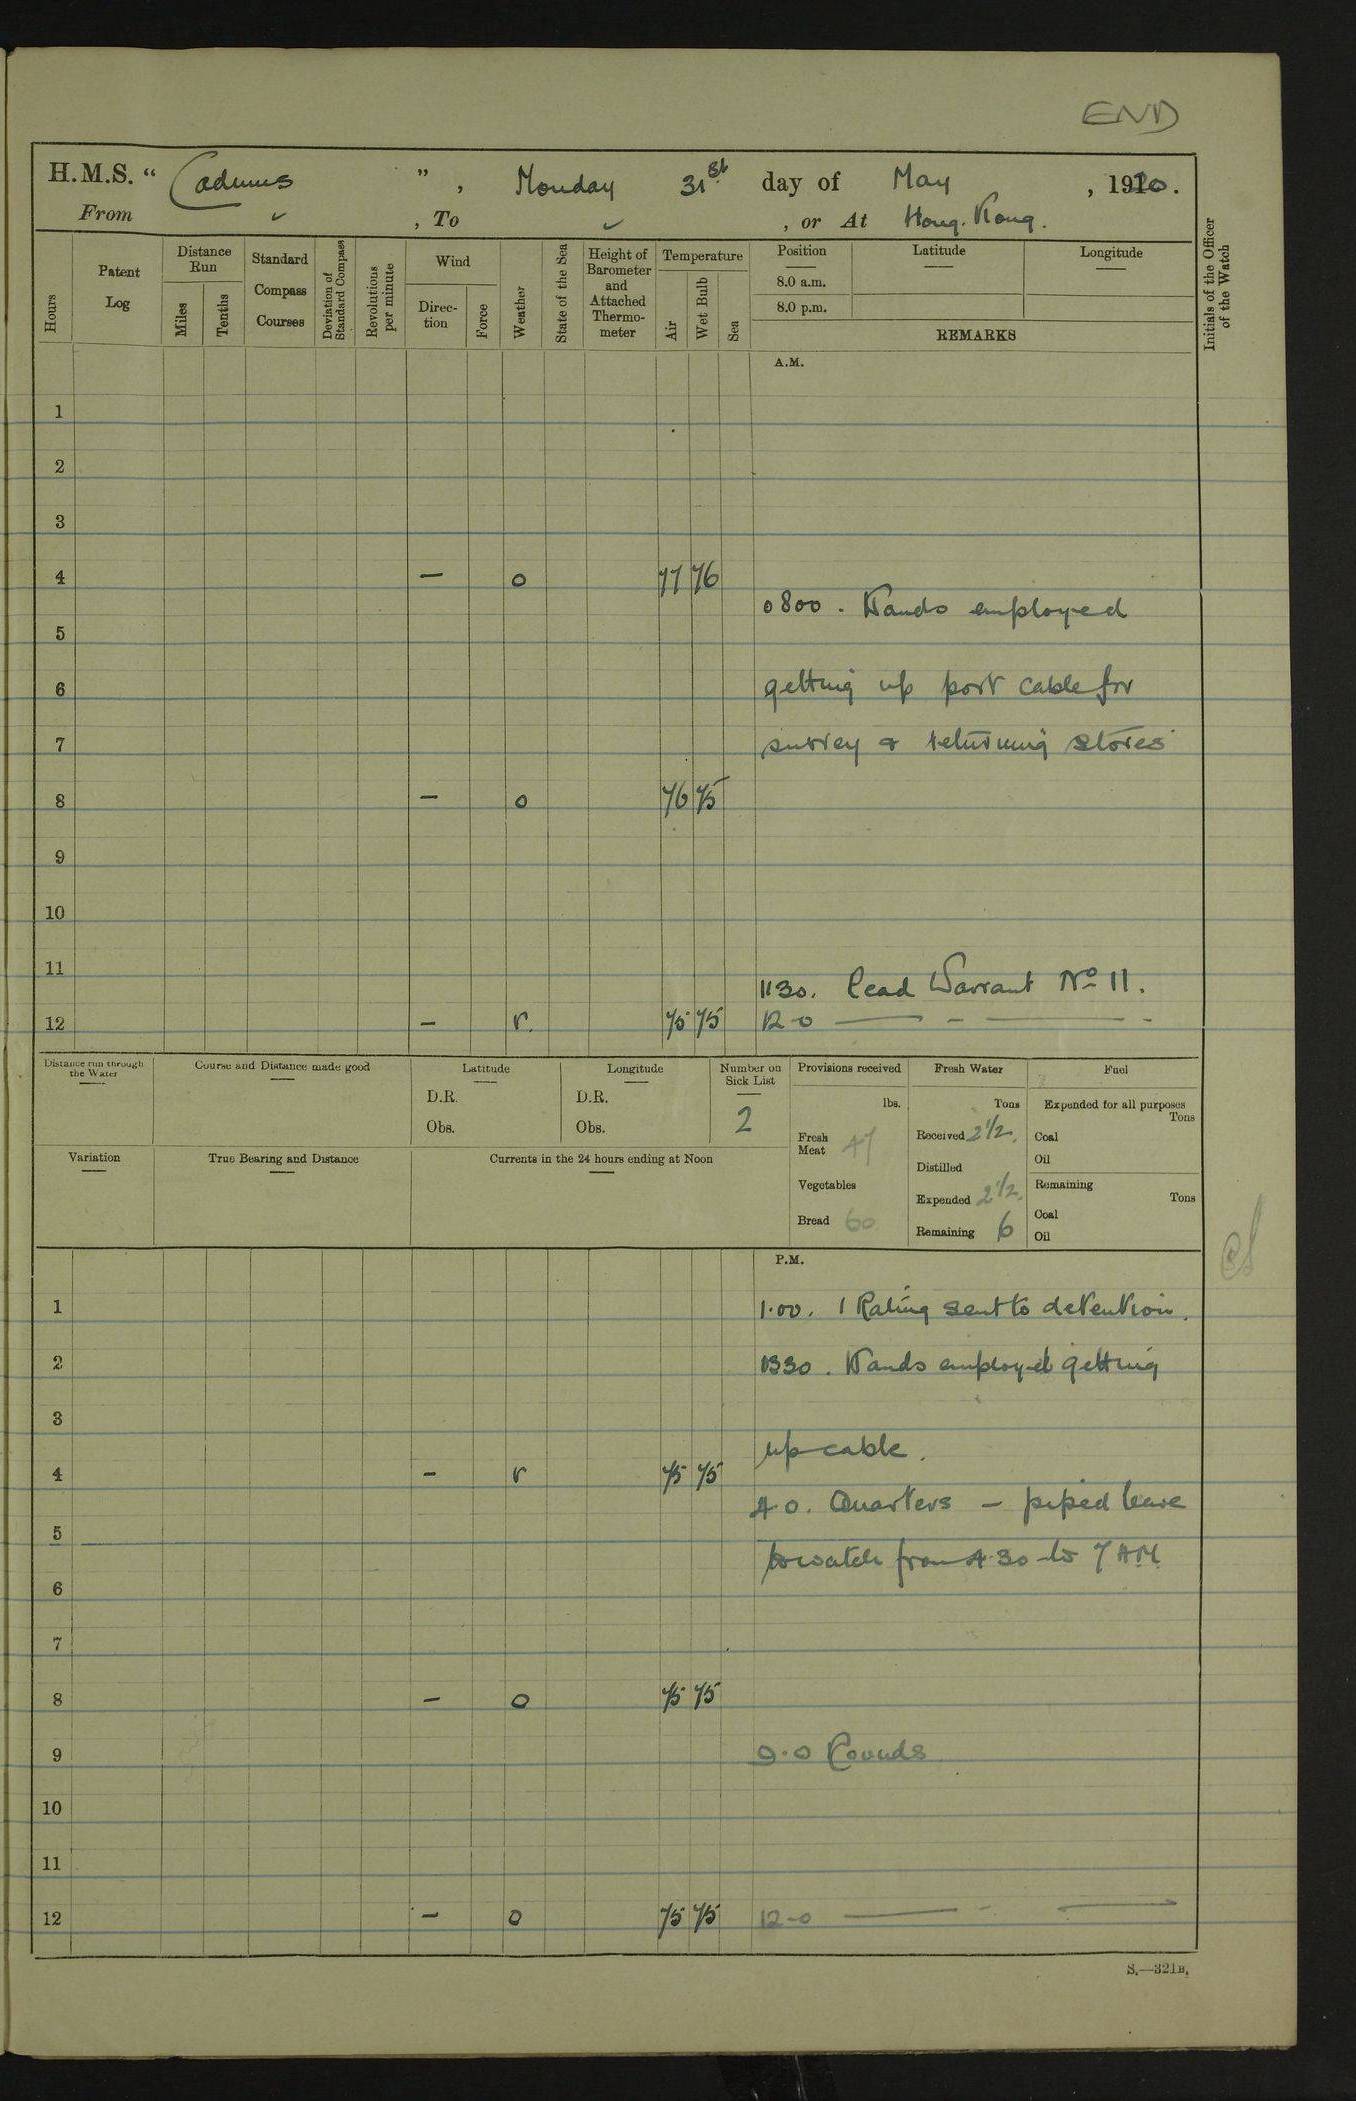 END
H.M.S. “ Cadmus ” , Monday 31st day of May , 1920.
From ✓ , To ✓ , or At Hong. Kong.
Hours
Patent Log
Distance Run
Miles
Tenths
Standard Compass Courses
Deviation of Standard Compass
Revolutions per minute
Wind
Direc-tion
Force
Weather
State of the Sea
Height of Barometer and Attached Thermo-meter
Temperature
Air
Wet Bulb
Sea
Position
8.0 a.m.
8.0 p.m.
Latitude
Longitude
REMARKS
Initials of the Officer of the Watch
A.M.
1
2
3
4 – o 77 76
0800. Hands employed
5
6 getting up port cable for
7 survey & returning stores
8 – o 76 75
9
10
11
1130. Read Warrant No 11.
12 – r. 75 75 12-0 — - — - -
Distance run through the Water
Course and Distance made good
Latitude
D.R.
Obs.
Longitude
D.R.
Obs.
Number on Sick List
2
Provisions received
lbs.
Fresh Meat 47
Vegetables
Bread 60
Fresh Water
Tons
Received 2 1/2.
Distilled
Expended 2 1/2.
Remaining 6
Fuel
Expended for all purposes
Tons
Coal
Oil
Remaining
Tons
Coal
Oil
Variation
True Bearing and Distance
Currents in the 24 hours ending at Noon
P.M.
1 1.00. 1 Rating sent to detention.
2 1330. Hands employed getting
3
up cable.
4 – r 75 75
4.0. Quarters – piped leave
5
to watch from 4.30 to 7 AM
6
7
8 – o 75 75
9 9.0 Rounds
10
11
12 – o 75 75 12-0 — - —
S.—321B.